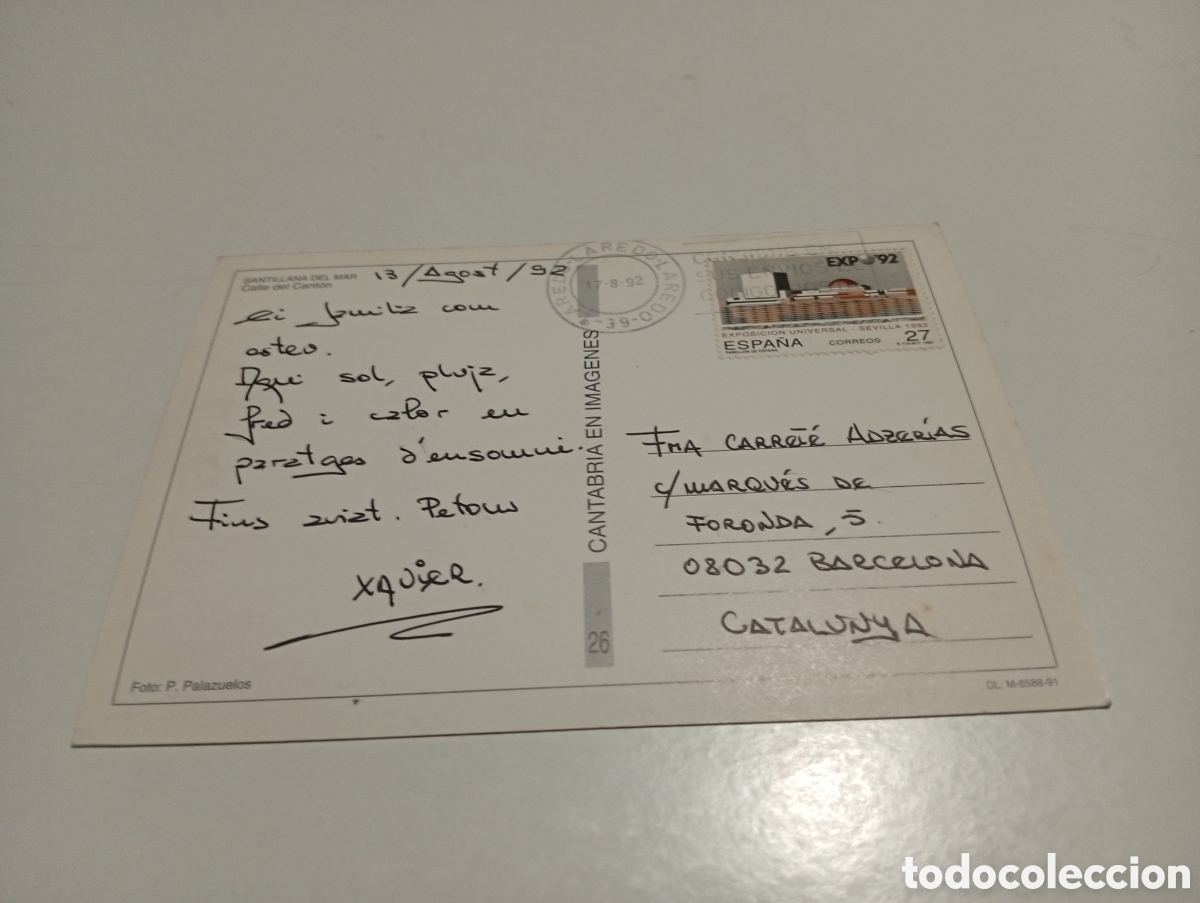 SANTILLANA DEL MAR
Calle del Cantón
13/Agost/92
com
esteu.
Aquí sol, pluja,
fred i calor en
paratges d'ensomni.
Fins aviat. Petons
XAVIER.
Foto: P. Palazuelos
CANTABRIA EN IMAGENES
26
LAREDO-LAREDO
17-8-92
-39-00
SUS ENVIOS
EXPO'92
EXPOSICION UNIVERSAL - SEVILLA 1992
ESPAÑA CORREOS 27
PABELLON DE ESPAÑA
FMA CARRETÉ ADZERÍAS
C/MARQUÉS DE
FORONDA, 5.
08032 BARCELONA
CATALUNYA
DL: M-6588-91
todocoleccion